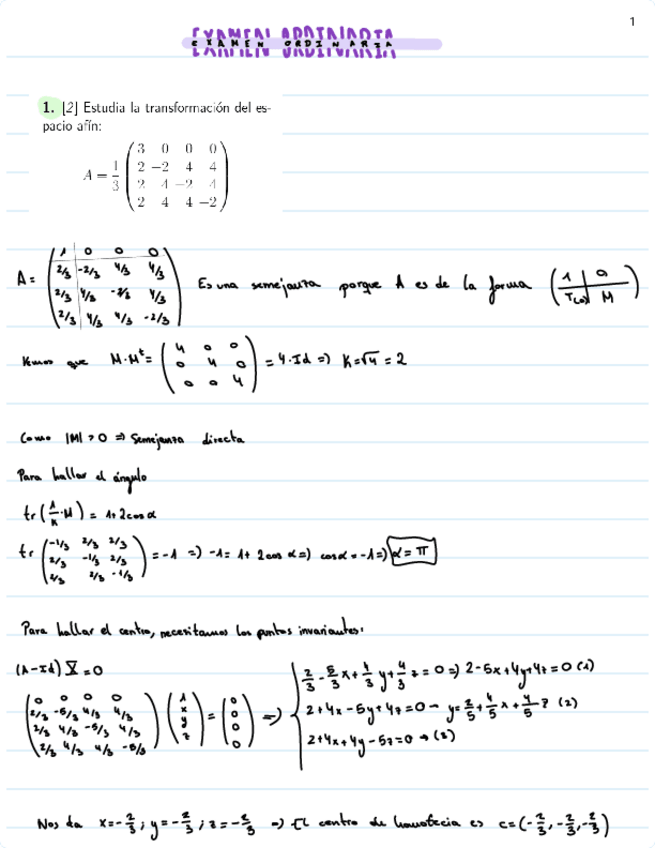 1
EXAMEN ORDINARIA
EXAMEN ORDINARIA
1. [2] Estudia la transformación del es-
pacio afín:
A = 1/3 ( 3 0 0 0
2 −2 4 4
2 4 −2 4
2 4 4 −2 )
A = ( 1 0 0 0
2/3 -2/3 4/3 4/3
2/3 4/3 -2/3 4/3
2/3 4/3 4/3 -2/3 ) Es una semejanza porque A es de la forma ( 1 | 0
T(o) | M )
Vemos que M·Mᵗ = ( 4 0 0
0 4 0
0 0 4 ) = 4·Id => K=√4 = 2
Como |M| > 0 => Semejanza directa
Para hallar el ángulo
tr(1/K · M) = 1+2cos α
tr ( -1/3 2/3 2/3
2/3 -1/3 2/3
2/3 2/3 -1/3 ) = -1 => -1 = 1+2cos α => cos α = -1 => α = π
Para hallar el centro, necesitamos los puntos invariantes:
(A-Id) X = 0
( 0 0 0 0
2/3 -5/3 4/3 4/3
2/3 4/3 -5/3 4/3
2/3 4/3 4/3 -5/3 ) ( 1 x y z ) = ( 0 0 0 0 ) =>
2/3 - 5/3 x + 4/3 y + 4/3 z = 0 => 2-5x+4y+4z=0 (1)
2+4x-5y+4z=0 → y = 2/5 + 4/5 x + 4/5 z (2)
2+4x+4y-5z=0 → (3)
Nos da x=-2/3 ; y=-2/3 ; z=-2/3 => El centro de homotecia es c=(-2/3, -2/3, -2/3)